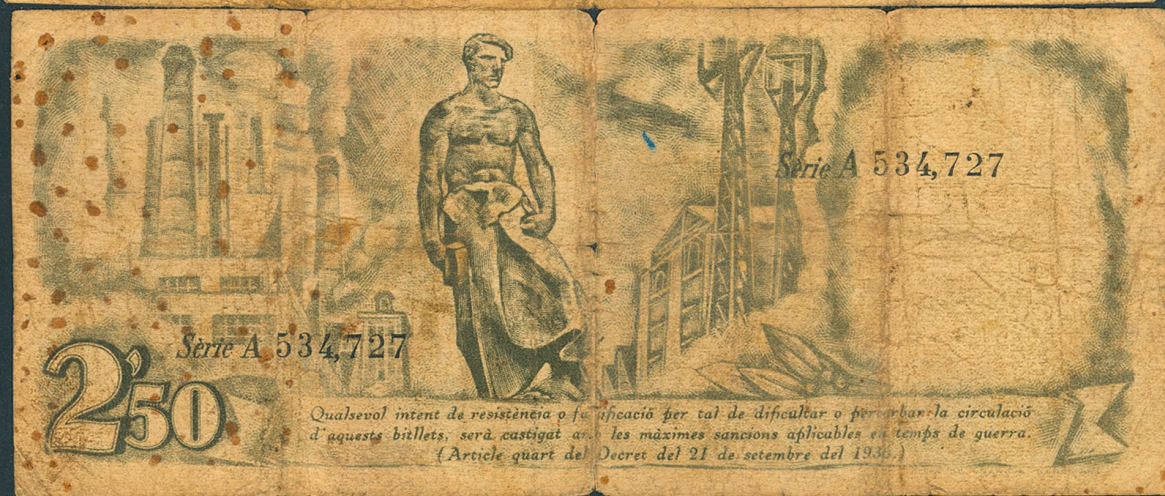 Sèrie A 534,727
Sèrie A 534,727
2'50
Qualsevol intent de resistència o falsificació per tal de dificultar o perturbar la circulació
d'aquests bitllets, serà castigat amb les màximes sancions aplicables en temps de guerra.
(Article quart del Decret del 21 de setembre del 1936.)